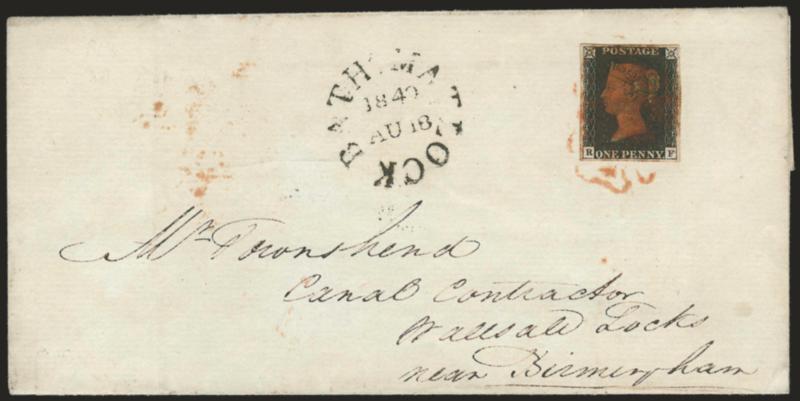 POSTAGE
R ONE PENNY F
MATLOCK BATH
1840
AU 18
Mr. Townshend
Canal Contractor
Wallsall Locks
near Birmingham